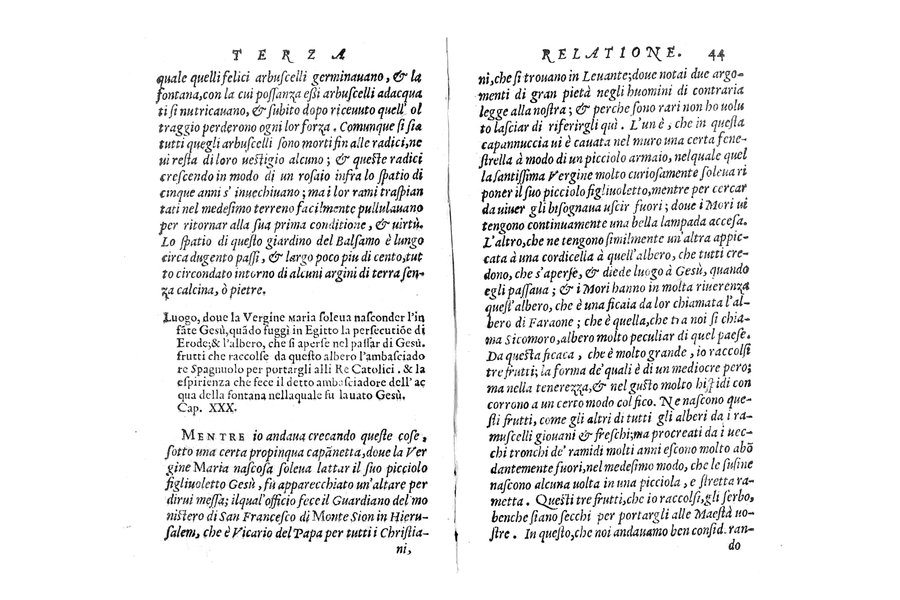 TERZA
quale quelli felici arbuscelli germinauano, & la
fontana, con la cui possanza essi arbuscelli adacqua
ti si nutricauano, & subito dopo riceuuto quell' ol
traggio perderono ogni lor forza. Comunque si sia
tutti quegli arbuscelli sono morti fin alle radici, ne
ui resta di loro uestigio alcuno; & queste radici
crescendo in modo di un rosaio infra lo spatio di
cinque anni s' inuechiuano; ma i lor rami traspian
tati nel medesimo terreno facilmente pullulauano
per ritornar alla sua prima conditione, & uirtù.
Lo spatio di questo giardino del Balsamo è lungo
circa dugento passi, & largo poco piu di cento, tut
to circondato intorno di alcuni argini di terra sen-
za calcina, ò pietre.
Luogo, doue la Vergine Maria soleua nasconder l'in
fāte Gesù, quādo fuggì in Egitto la persecutiōe di
Erode; & l'albero, che si aperse nel passar di Gesù.
frutti che raccolse da questo albero l'ambasciado
re Spagnuolo per portargli alli Re Catolici. & la
espirienza che fece il detto ambasciadore dell' ac
qua della fontana nellaquale fu lauato Gesù.
Cap. XXX.
MENTRE io andaua crecando queste cose,
sotto una certa propinqua capānetta, doue la Ver
gine Maria nascosa soleua lattar il suo picciolo
figliuoletto Gesù, fù apparecchiato un'altare per
dirui messa; ilqual'officio fece il Guardiano del mo
nistero di San Francesco di Monte Sion in Hieru-
salem, che è Vicario del Papa per tutti i Christia-
ni,
RELATIONE. 44
ni, che si trouano in Leuante; doue notai due argo-
menti di gran pietà negli huomini di contraria
legge alla nostra; & perche sono rari non ho uolu
to lasciar di riferirgli quì. L'un è, che in questa
capannuccia ui è cauata nel muro una certa fene-
strella à modo di un picciolo armaio, nelquale quel
la santissima Vergine molto curiosamente soleua ri
poner il suo picciolo figliuoletto, mentre per cercar
da uiuer gli bisognaua uscir fuori; doue i Mori ui
tengono continuamente una bella lampada accesa.
L'altro, che ne tengono similmente un'altra appic-
cata à una cordicella à quell'albero, che tutti cre-
dono, che s'aperse, & diede luogo à Gesù, quando
egli passaua; & i Mori hanno in molta riuerenza
quest'albero, che è una ficaia da lor chiamata l'al-
bero di Faraone; che è quella, che tra noi si chia-
ma Sicomoro, albero molto peculiar di quel paese.
Da questa ficaca, che è molto grande, io raccolsi
tre frutti; la forma de' quali è di un mediocre pero;
ma nella tenerezza, & nel gusto molto hispidi con
corrono a un certo modo col fico. Ne nascono que-
sti frutti, come gli altri di tutti gli alberi da i ra-
muscelli giouani & freschi; ma procreati da i uec-
chi tronchi de' ramidi molti anni escono molto abō
dantemente fuori, nel medesimo modo, che le susine
nascono alcuna uolta in una picciola, e stretta ra-
metta. Questi tre frutti, che io raccolsi, gli serbo,
benche siano secchi per portargli alle Maestà uo-
stre. In questo, che noi andauamo ben consid.ran-
do